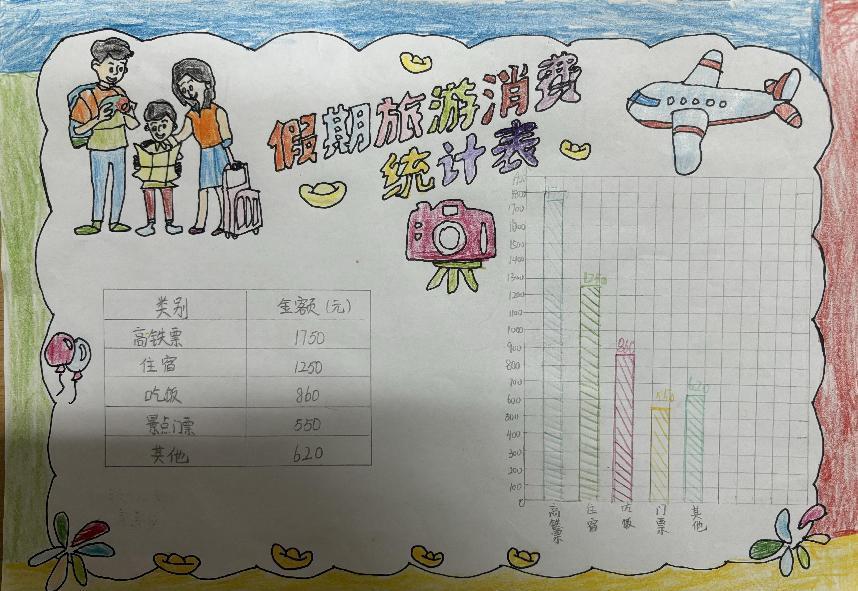 假期旅游消费
统计表
类别 金额(元)
高铁票 1750
住宿 1250
吃饭 860
景点门票 550
其他 620
1800
1700
1600
1500
1400
1300
1200
1100
1000
900
800
700
600
500
400
300
200
100
0
1250
860
550
620
高铁票
住宿
吃饭
门票
其他